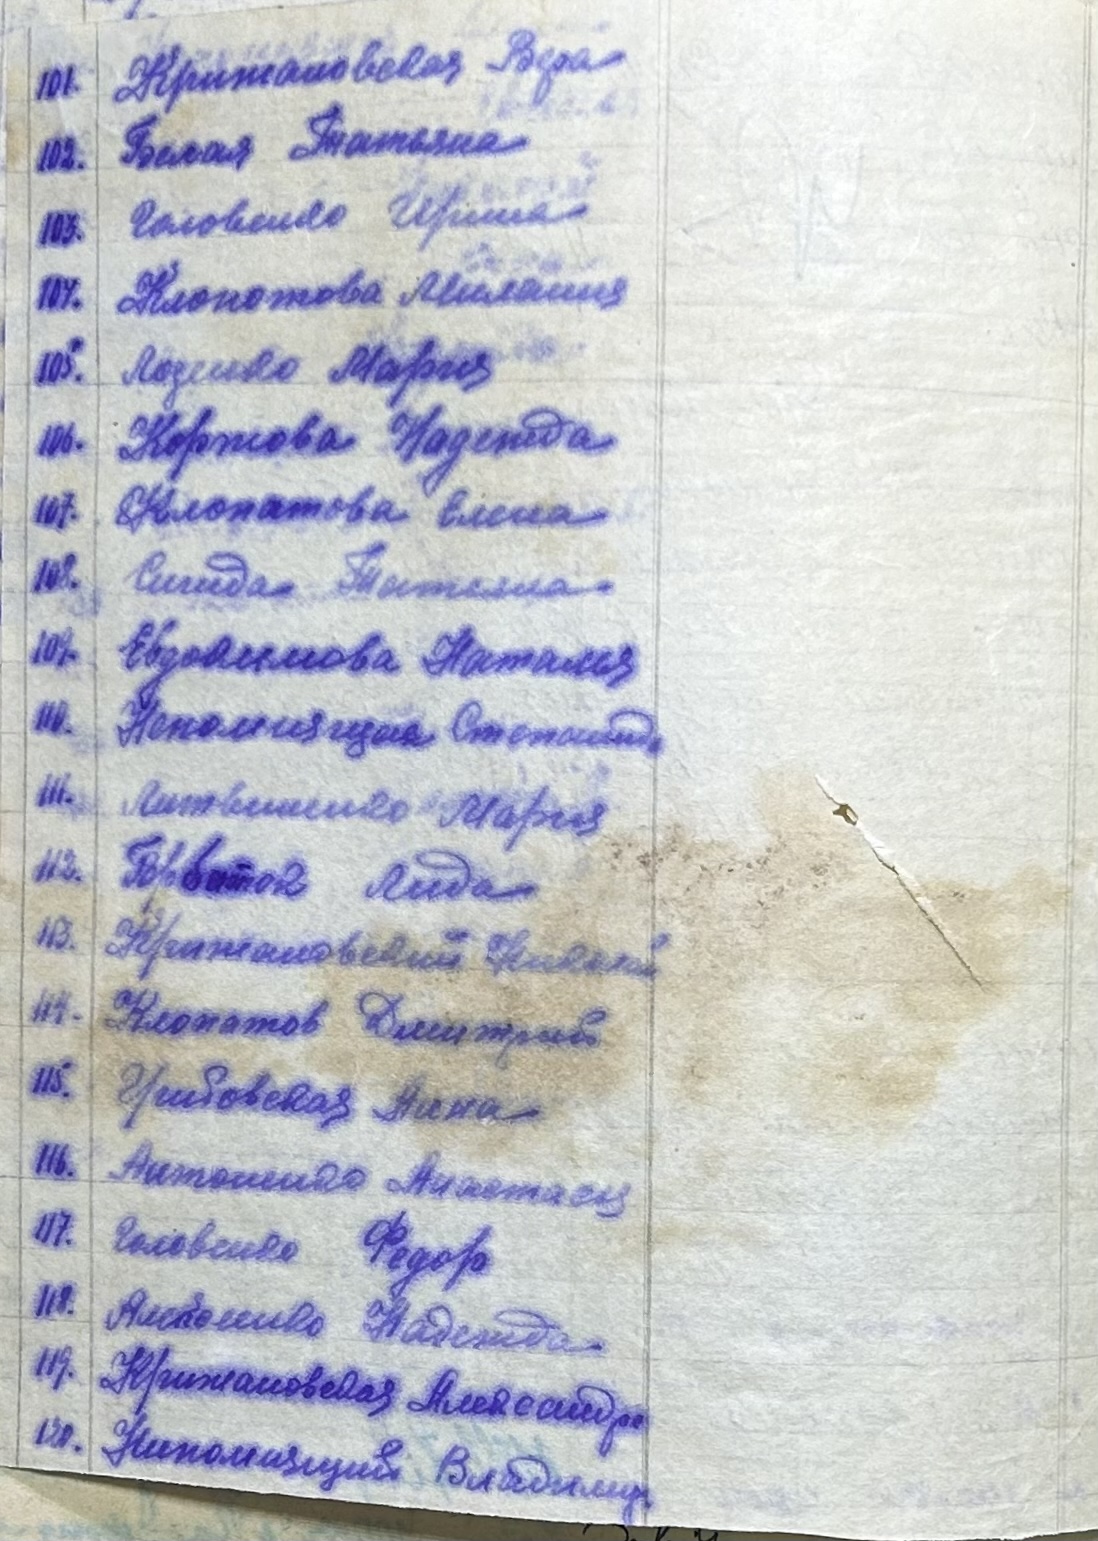 101. Крижановская Вера
102. Белая Татьяна
103. Головенко Ирина
104. Клопотова Милания
105. Лозенко Мария
106. Коржова Надежда
107. Клопатова Елена
108. Сигида Татьяна
109. Евдокимова Наталия
110. Непомнящая Степанида
111. Литвиненко Мария
112. Лида
113. Крижановский Николай
114. Клопатов Дмитрий
115. Грибовская Анна
116. Антоненко Анастасия
117. Головенко Федор
118. Надежда
119. Крижановская Александра
120. Нипомнящий Владимир